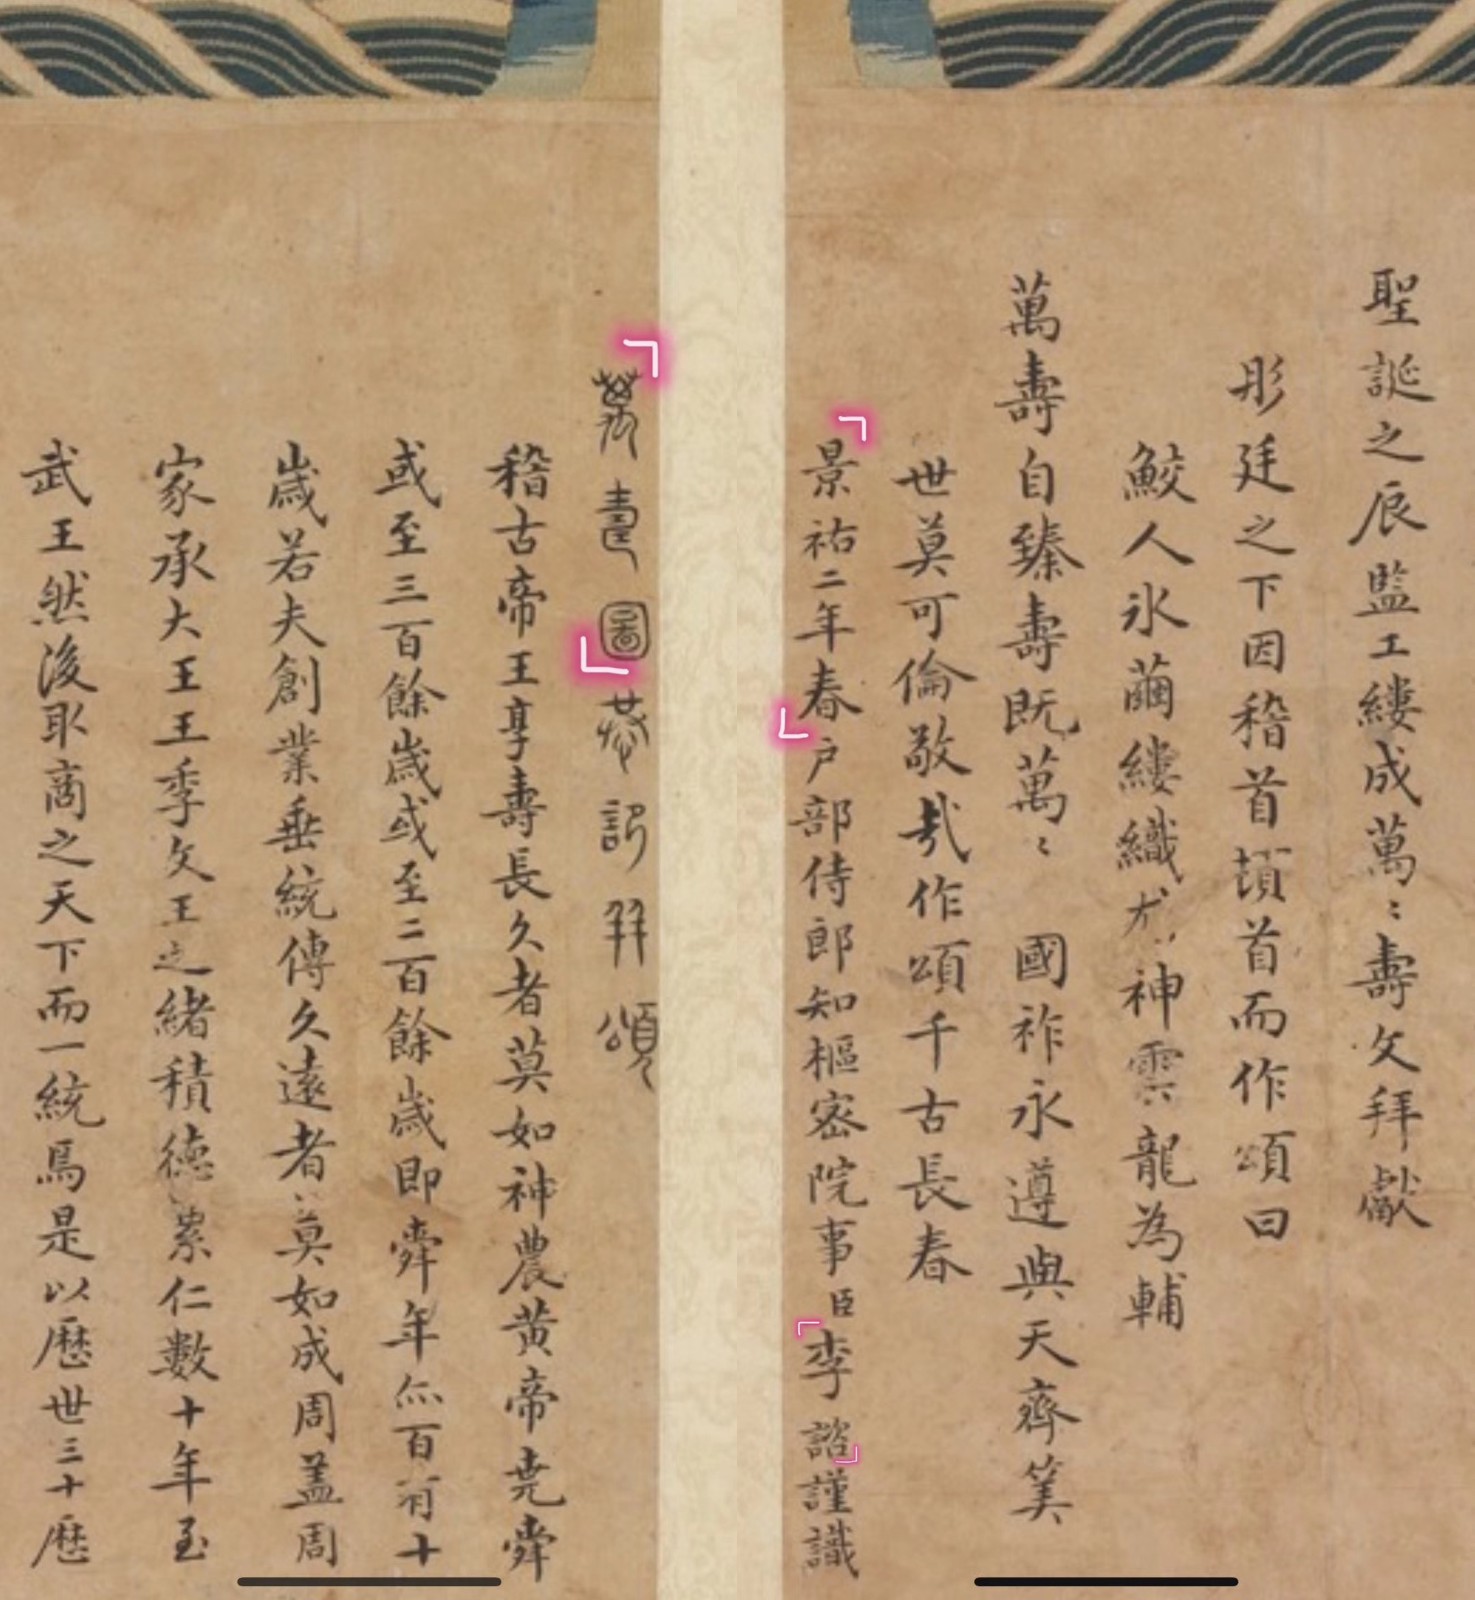 萬壽圖恭記拜頌
稽古帝王享壽長久者莫如神農黄帝尭舜
或至三百餘歲或至二百餘歲即舜年亦百有十
歲若夫創業垂統傳久遠者莫如成周盖周
家承大王王季文王之緒積德累仁數十年至
武王然後取商之天下而一統焉是以歷世三十歷
聖誕之辰監工縷成萬〻壽文拜獻
彤廷之下因稽首頓首而作頌曰
鮫人氷繭縷織尤神雲龍為輔
萬壽自臻壽既萬〻 國祚永遵與天齊筭
世莫可倫敬哉作頌千古長春
景祐二年春户部侍郎知樞密院事臣李諮謹識